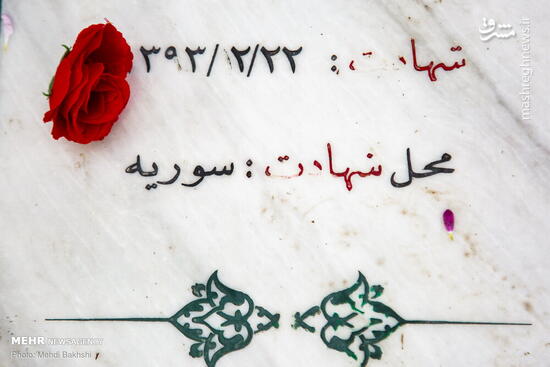 شهادت : ۳۹۳/۲/۲۲
محل شهادت : سوریه
مشرق
mashreghnews.ir
MEHR NEWSAGENCY
Photo: Mehdi Bakhshi